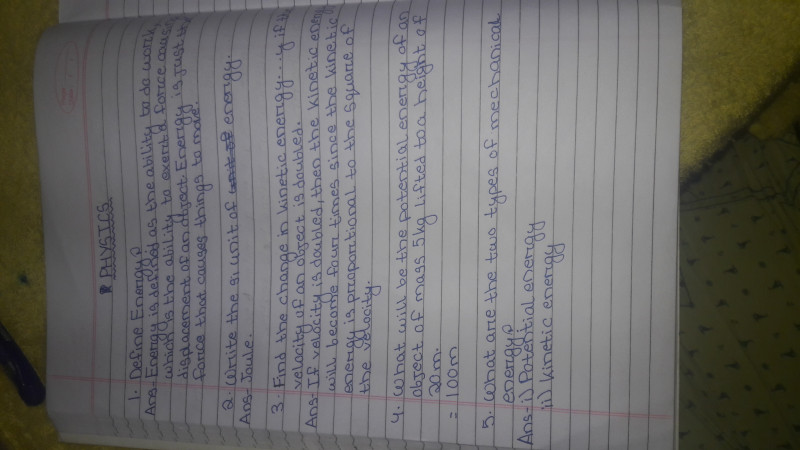 PHYSICS
1. Define Energy?
Ans- Energy is defined as the ability to do work,
which is the ability to exert a force causing
displacement of an object. Energy is just the
force that causes things to move.
2. Write the si unit of energy.
Ans- Joule.
3. Find the change in kinetic energy...y if the
velocity of an object is doubled.
Ans- If velocity is doubled, then the kinetic energy
will become four times since the kinetic
energy is proportional to the square of
the velocity.
4. What will be the potential energy of an
object of mass 5kg lifted to a height of
20m.
= 100m
5. What are the two types of mechanical
energy?
Ans- i) Potential energy
ii) kinetic energy